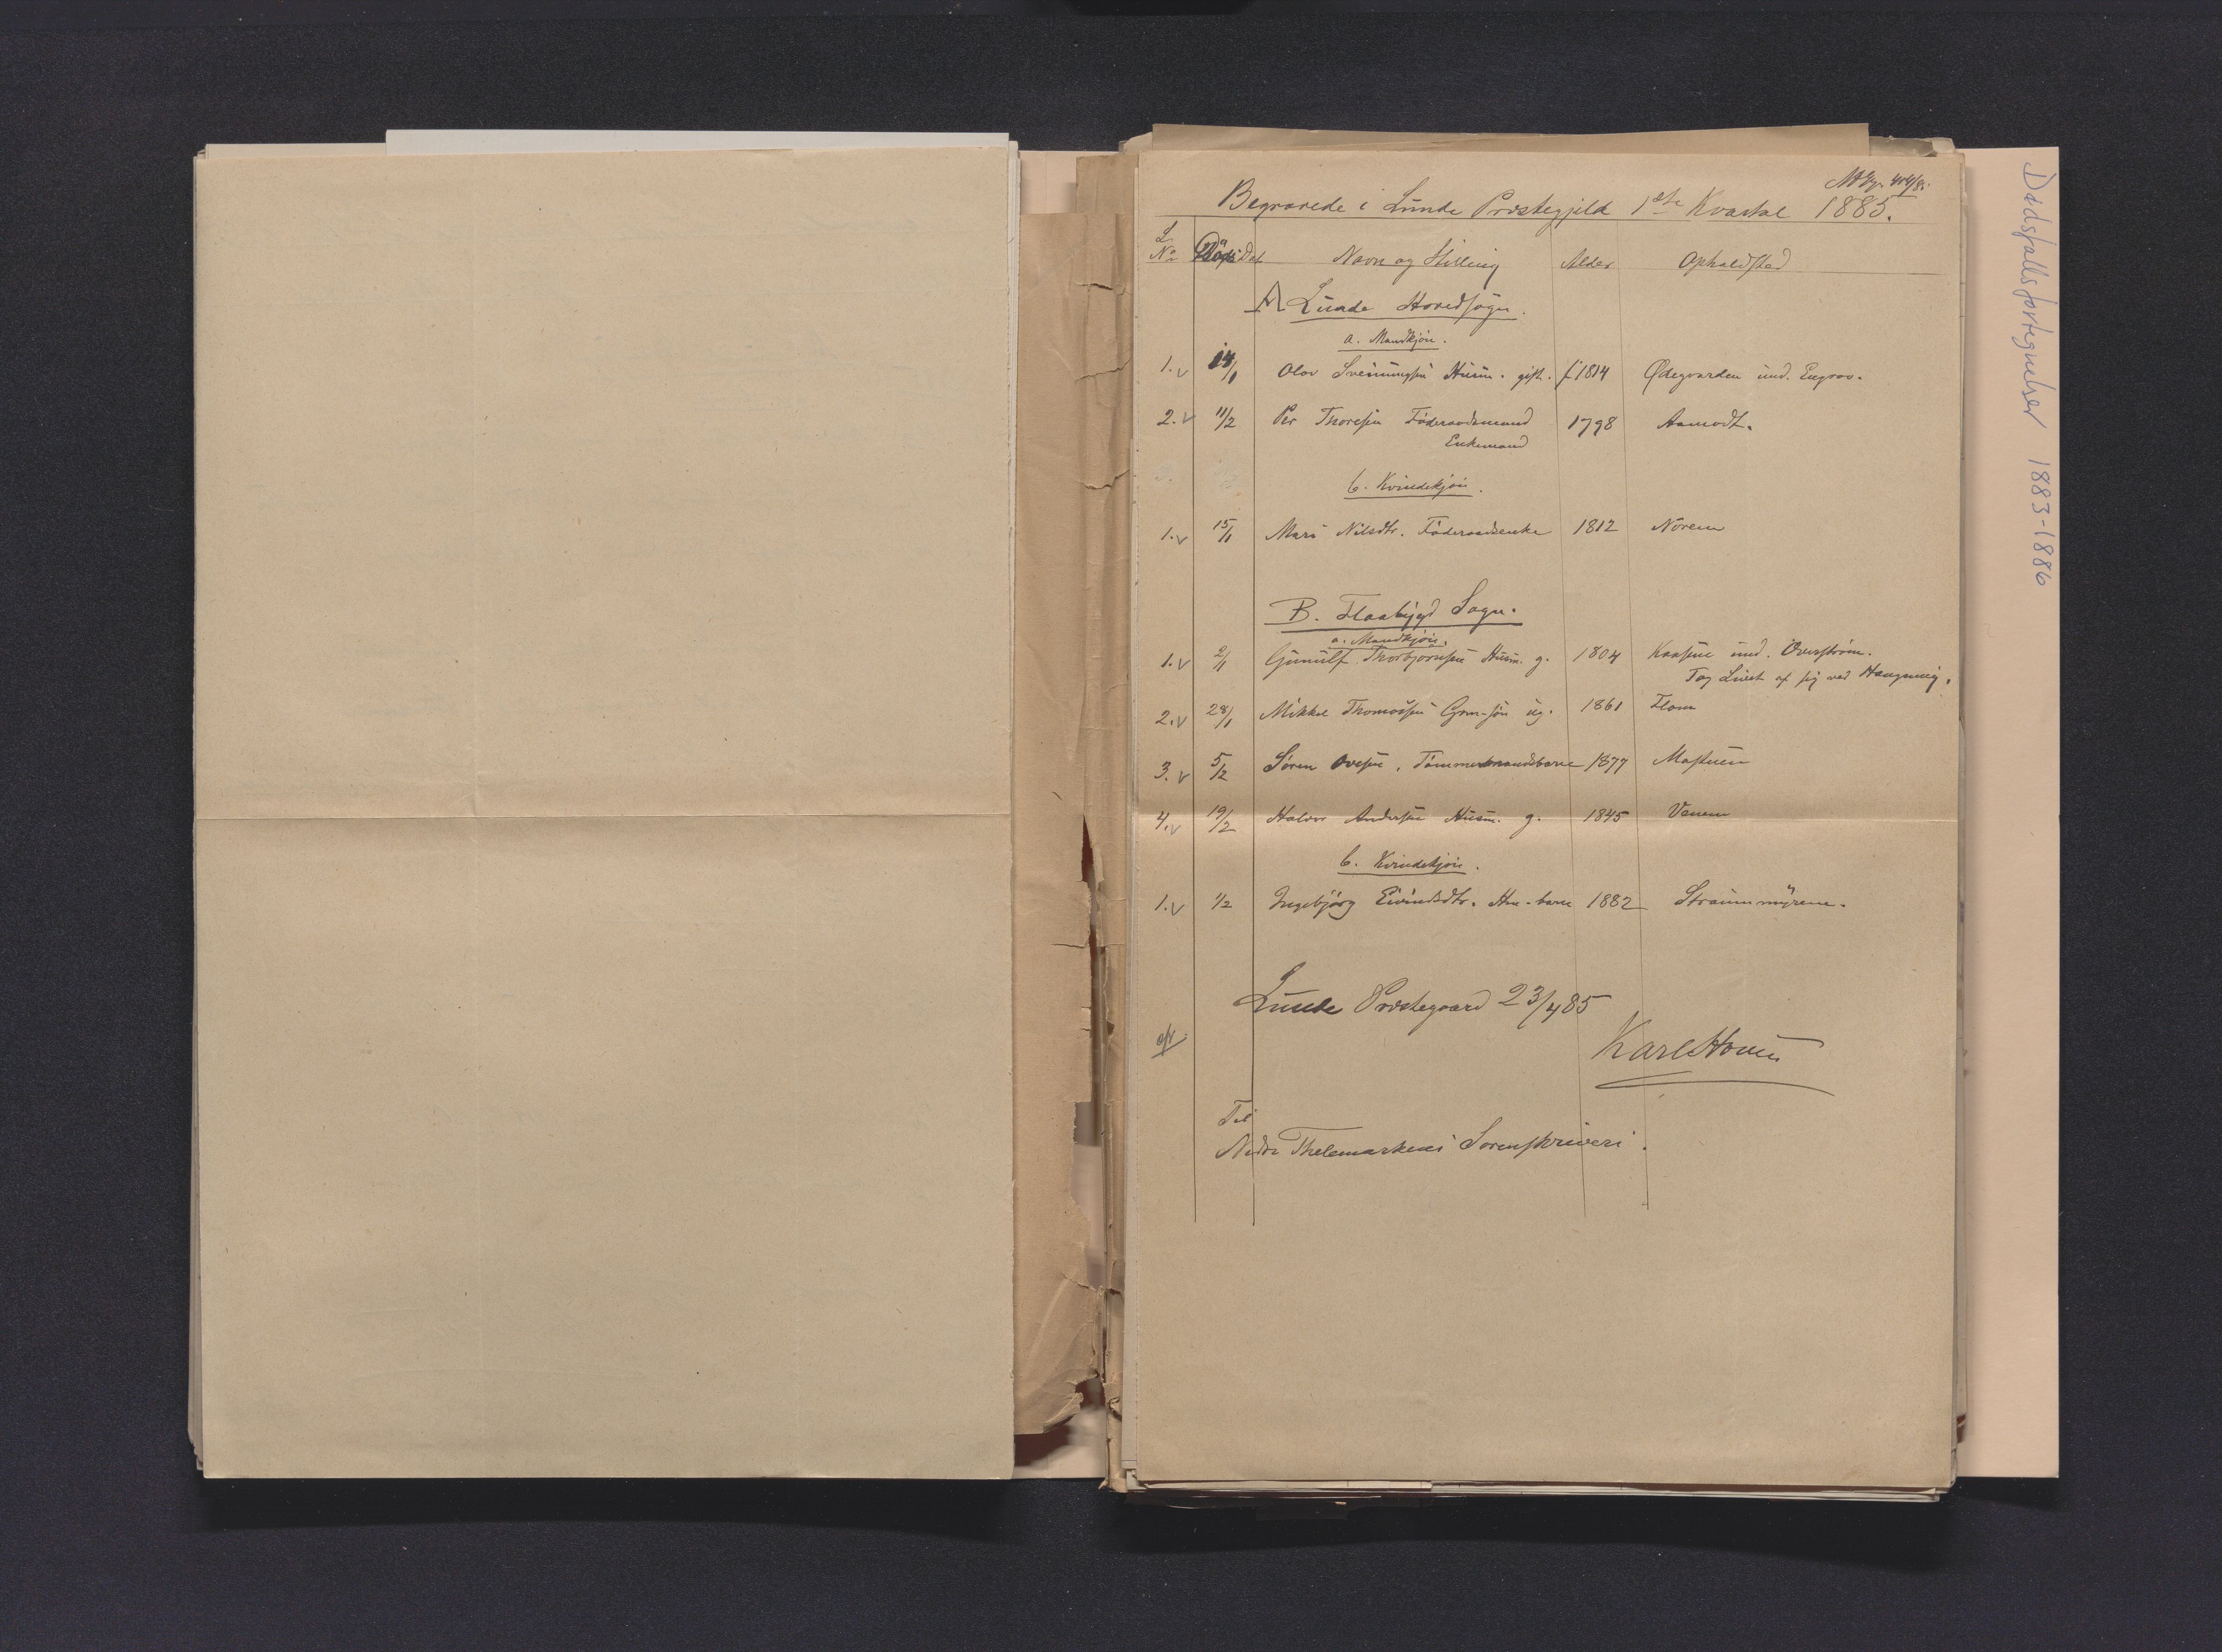 Begravede i Lunde Præstegjeld 1ste Kvartal 1885.
L. No Døds Dat Navn og Stilling Alder Opholdsted
A Lunde Hovedsogn.
a. Mandkjøn.
1. v 14/1 Olav Sveinungsen Husm. gift. f 1814 Ødegaarden und. Engrav.
2. v 11/2 Per Thoresen Föderaadsmand 1798 Aamodt.
Enkemand
b. Kvindekjön.
1. v 15/1 Mari Nilsdtr. Föderaadsenke 1812 Norem
B. Flaabygd Sogn.
a. Mandkjön.
1. v 2/1 Gunulf Thorbjørnsen Husm. g. 1804 Kaasene und. Överström.
Tog Livet af sig ved Hængning.
2. v 28/1 Mikkel Thomassen Grm-sön ug. 1861 Flom
3. v 5/2 Sören Ovesen, Tömmermandsbarn 1877 Mastuen
4. v 19/2 Halvor Andersen Husm. g. 1845 Venem
b. Kvindekjön.
1. v 1/2 Ingebjörg Eivindsdtr. Hm-barn 1882 Straummyrene.
Lunde Præstegaard 23/4 85
Karl Hovin
Til
Nedre Thelemarkens Sorenskriveri.
Dødsfallsfortegnelser 1883-1886